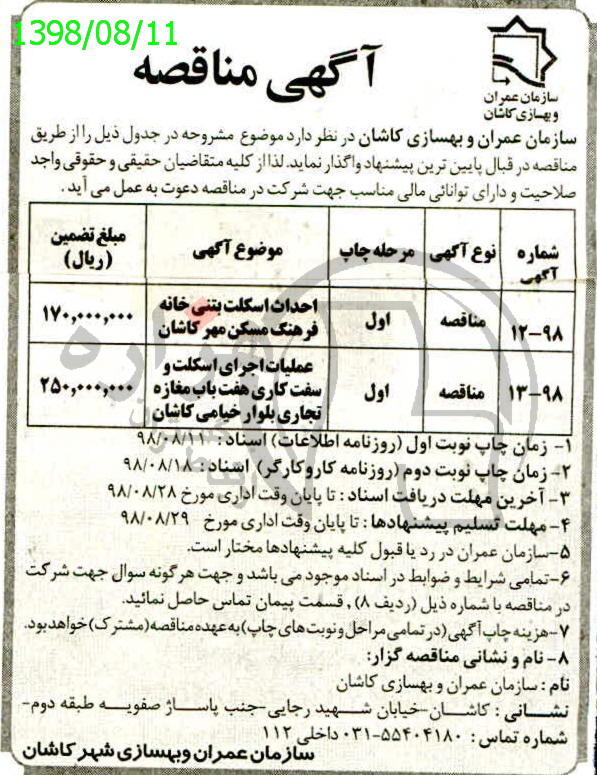 1398/08/11
سازمان عمران
و بهسازی کاشان
آگهی مناقصه
سازمان عمران و بهسازی کاشان در نظر دارد موضوع مشروحه در جدول ذیل را از طریق
مناقصه در قبال پایین ترین پیشنهاد واگذار نماید. لذا از کلیه متقاضیان حقیقی و حقوقی واجد
صلاحیت و دارای توانائی مالی مناسب جهت شرکت در مناقصه دعوت به عمل می آید.
شماره آگهی نوع آگهی مرحله چاپ موضوع آگهی مبلغ تضمین (ریال)
۱۲-۹۸ مناقصه اول احداث اسکلت بتنی خانه فرهنگ مسکن مهر کاشان ۱۷۰,۰۰۰,۰۰۰
۱۳-۹۸ مناقصه اول عملیات اجرای اسکلت و سفت کاری هفت باب مغازه تجاری بلوار خیامی کاشان ۲۵۰,۰۰۰,۰۰۰
۱- زمان چاپ نوبت اول (روزنامه اطلاعات) اسناد: ۹۸/۰۸/۱۱
۲- زمان چاپ نوبت دوم (روزنامه کاروکارگر) اسناد: ۹۸/۰۸/۱۸
۳- آخرین مهلت دریافت اسناد: تا پایان وقت اداری مورخ ۹۸/۰۸/۲۸
۴- مهلت تسلیم پیشنهادها: تا پایان وقت اداری مورخ ۹۸/۰۸/۲۹
۵- سازمان عمران در رد یا قبول کلیه پیشنهادها مختار است.
۶- تمامی شرایط و ضوابط در اسناد موجود می باشد و جهت هرگونه سوال جهت شرکت
در مناقصه با شماره ذیل (ردیف ۸)، قسمت پیمان تماس حاصل نمائید.
۷- هزینه چاپ آگهی (در تمامی مراحل و نوبت های چاپ) به عهده مناقصه (مشترک) خواهد بود.
۸- نام و نشانی مناقصه گزار:
نام: سازمان عمران و بهسازی کاشان
نشانی: کاشان-خیابان شهید رجایی-جنب پاساژ صفویه طبقه دوم-
شماره تماس: ۵۵۴۰۴۱۸۰-۰۳۱ داخلی ۱۱۲
سازمان عمران وبهسازی شهر کاشان